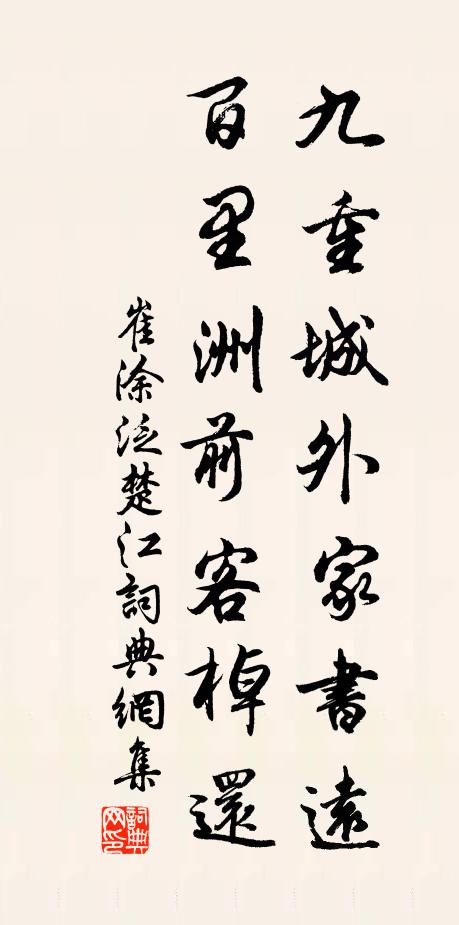 九重城外家書遠
百里洲前客棹還
崔涂泛楚江詞典網集
詞典網印